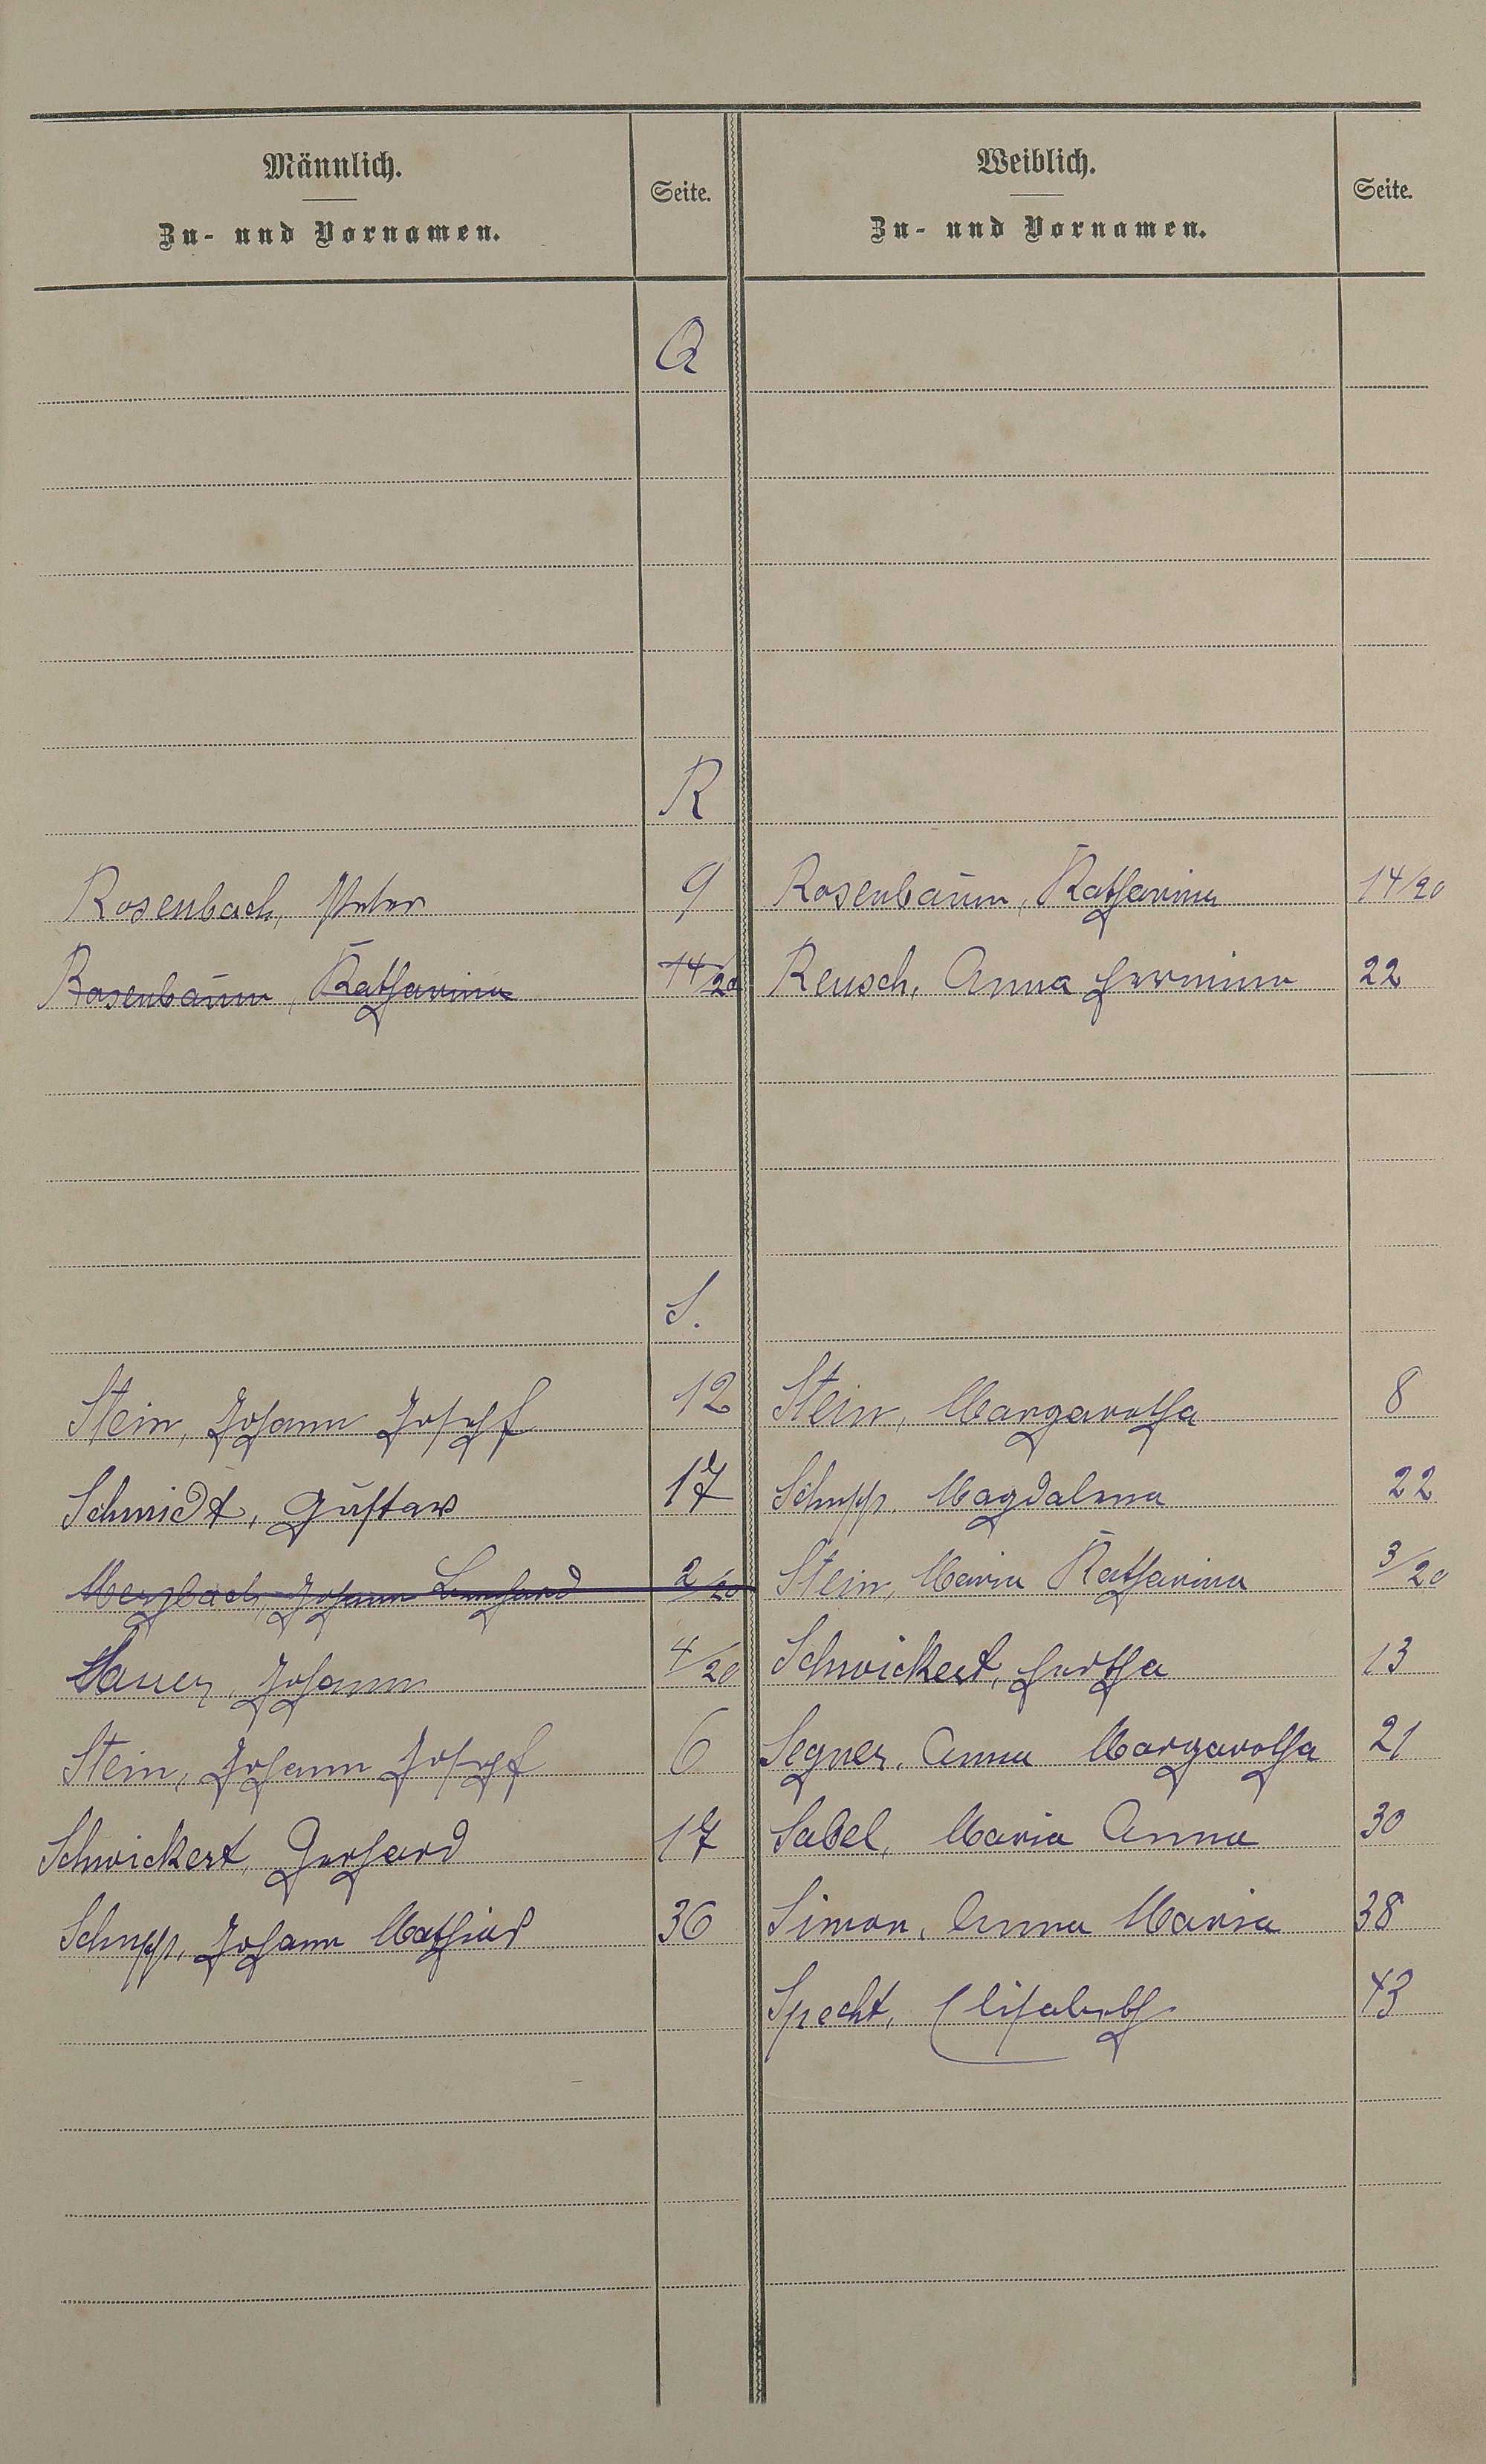 Männlich.
Zu- und Vornamen.
Seite.
Weiblich.
Zu- und Vornamen.
Seite.
Q
R
Rosenbach, Peter 9 Rosenbaum, Katharina 14/20
Rosenbaum, Katharina 14/20 Reusch, Anna Hermine 22
S.
Stein, Johann Joseph 12 Stein, Margaretha 8
Schmidt, Gustav 17 Schupp, Magdalena 22
Merzbach, Johann 2/20 Stein, Maria Katharina 3/20
Sauer, Johann 4/20 Schwickert, Hertha 13
Stein, Johann Joseph 6 Segner, Anna Margaretha 21
Schwickert, Gerhard 17 Sabel, Maria Anna 30
Schupp, Johann Mathias 36 Simon, Anna Maria 38
Specht, Elisabeth 43